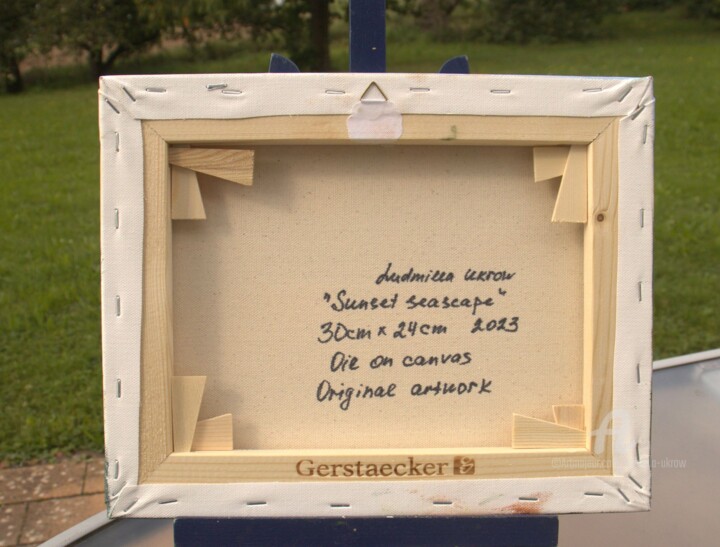 Ludmilla Ukrow
"Sunset seascape"
30cm x 24cm 2023
Oil on canvas
Original artwork
Gerstaecker